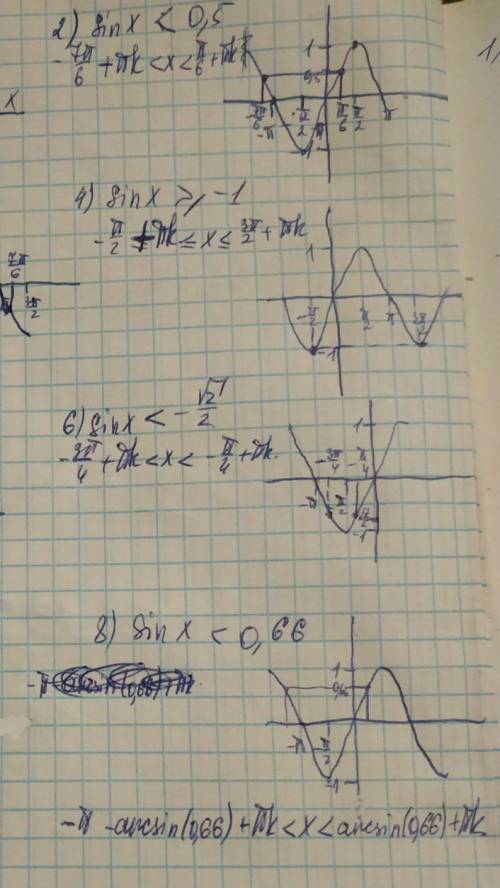 2) sin x < 0,5
-7π/6 + πk < x < π/6 + πk
1
0,5
-7π/6 -π -π/2 π/6 π/2 π
-1
1,
x
4) sin x ≥ -1
-π/2 + πk ≤ x ≤ 3π/2 + πk
1
-π/2 π/2 π 3π/2
-1
7π/6
3π/2
6) sin x < -√2/2
-3π/4 + πk < x < -π/4 + πk
1
-3π/4 -π/4
-π -π/2
-√2/2
-1
8) sin x < 0,66
-π
1
0,66
-π -π/2
-1
-π - arcsin(0,66) + πk < x < arcsin(0,66) + πk